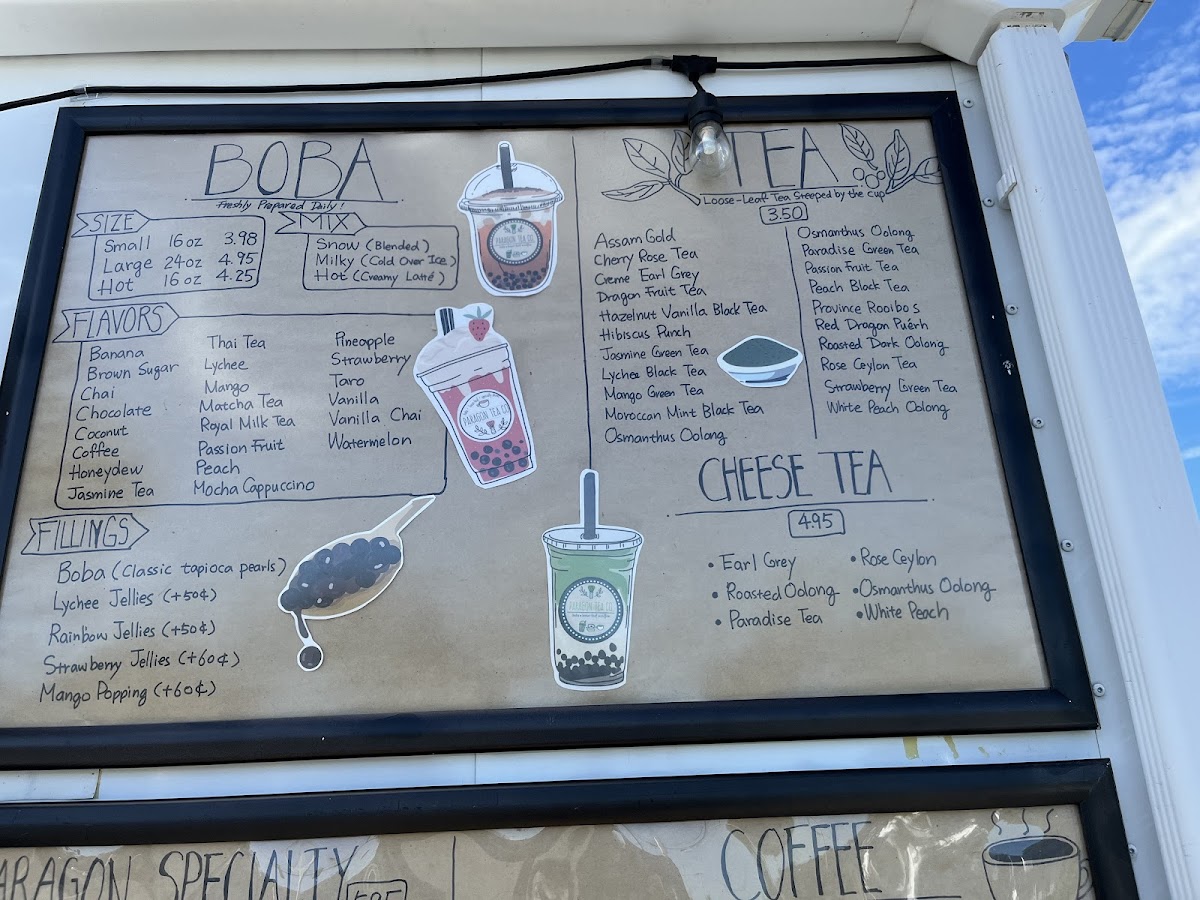 BOBA
Freshly Prepared Daily!
SIZE
Small 16oz 3.98
Large 24oz 4.95
Hot 16oz 4.25
MIX
Snow (Blended)
Milky (Cold Over Ice)
Hot (Creamy Latté)
FLAVORS
Banana
Brown Sugar
Chai
Chocolate
Coconut
Coffee
Honeydew
Jasmine Tea
Thai Tea
Lychee
Mango
Matcha Tea
Royal Milk Tea
Passion Fruit
Peach
Mocha Cappuccino
Pineapple
Strawberry
Taro
Vanilla
Vanilla Chai
Watermelon
FILLINGS
Boba (Classic tapioca pearls)
Lychee Jellies (+50¢)
Rainbow Jellies (+50¢)
Strawberry Jellies (+60¢)
Mango Popping (+60¢)
PARAGON TEA CO.
PARAGON TEA CO.
PARAGON TEA CO.
TEA
Loose-Leaf Tea Steeped by the cup
3.50
Assam Gold
Cherry Rose Tea
Creme Earl Grey
Dragon Fruit Tea
Hazelnut Vanilla Black Tea
Hibiscus Punch
Jasmine Green Tea
Lychee Black Tea
Mango Green Tea
Moroccan Mint Black Tea
Osmanthus Oolong
Osmanthus Oolong
Paradise Green Tea
Passion Fruit Tea
Peach Black Tea
Province Rooibos
Red Dragon Puérh
Roasted Dark Oolong
Rose Ceylon Tea
Strawberry Green Tea
White Peach Oolong
CHEESE TEA
4.95
• Earl Grey
• Roasted Oolong
• Paradise Tea
• Rose Ceylon
• Osmanthus Oolong
• White Peach
ARAGON SPECIALTY
COFFEE